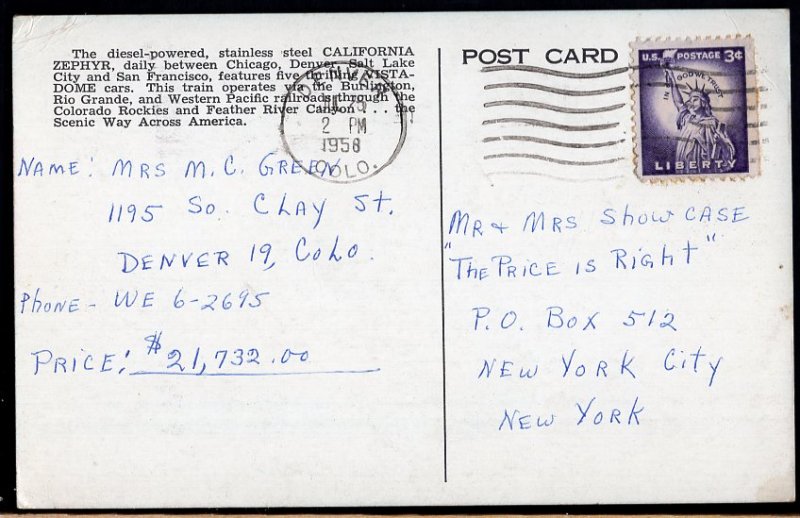 The diesel-powered, stainless steel CALIFORNIA
ZEPHYR, daily between Chicago, Denver, Salt Lake
City and San Francisco, features five thrilling VISTA-
DOME cars. This train operates via the Burlington,
Rio Grande, and Western Pacific railroads through the
Colorado Rockies and Feather River Canyon . . . the
Scenic Way Across America.
POST CARD
U.S. POSTAGE 3¢
IN GOD WE TRUST
LIBERTY
DENVER
2 PM
1956
COLO.
NAME: MRS M. C. GREEN
1195 So. CLAY St.
DENVER 19, COLO.
Phone - WE 6-2695
PRICE: $21,732.00
MR + MRS Show CASE
"The PRICE is Right"
P.O. Box 512
NEW YORK City
NEW YORK